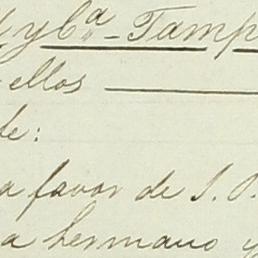 y Cª - Tamp
ellos
de:
a favor de S. S.
a hermano y